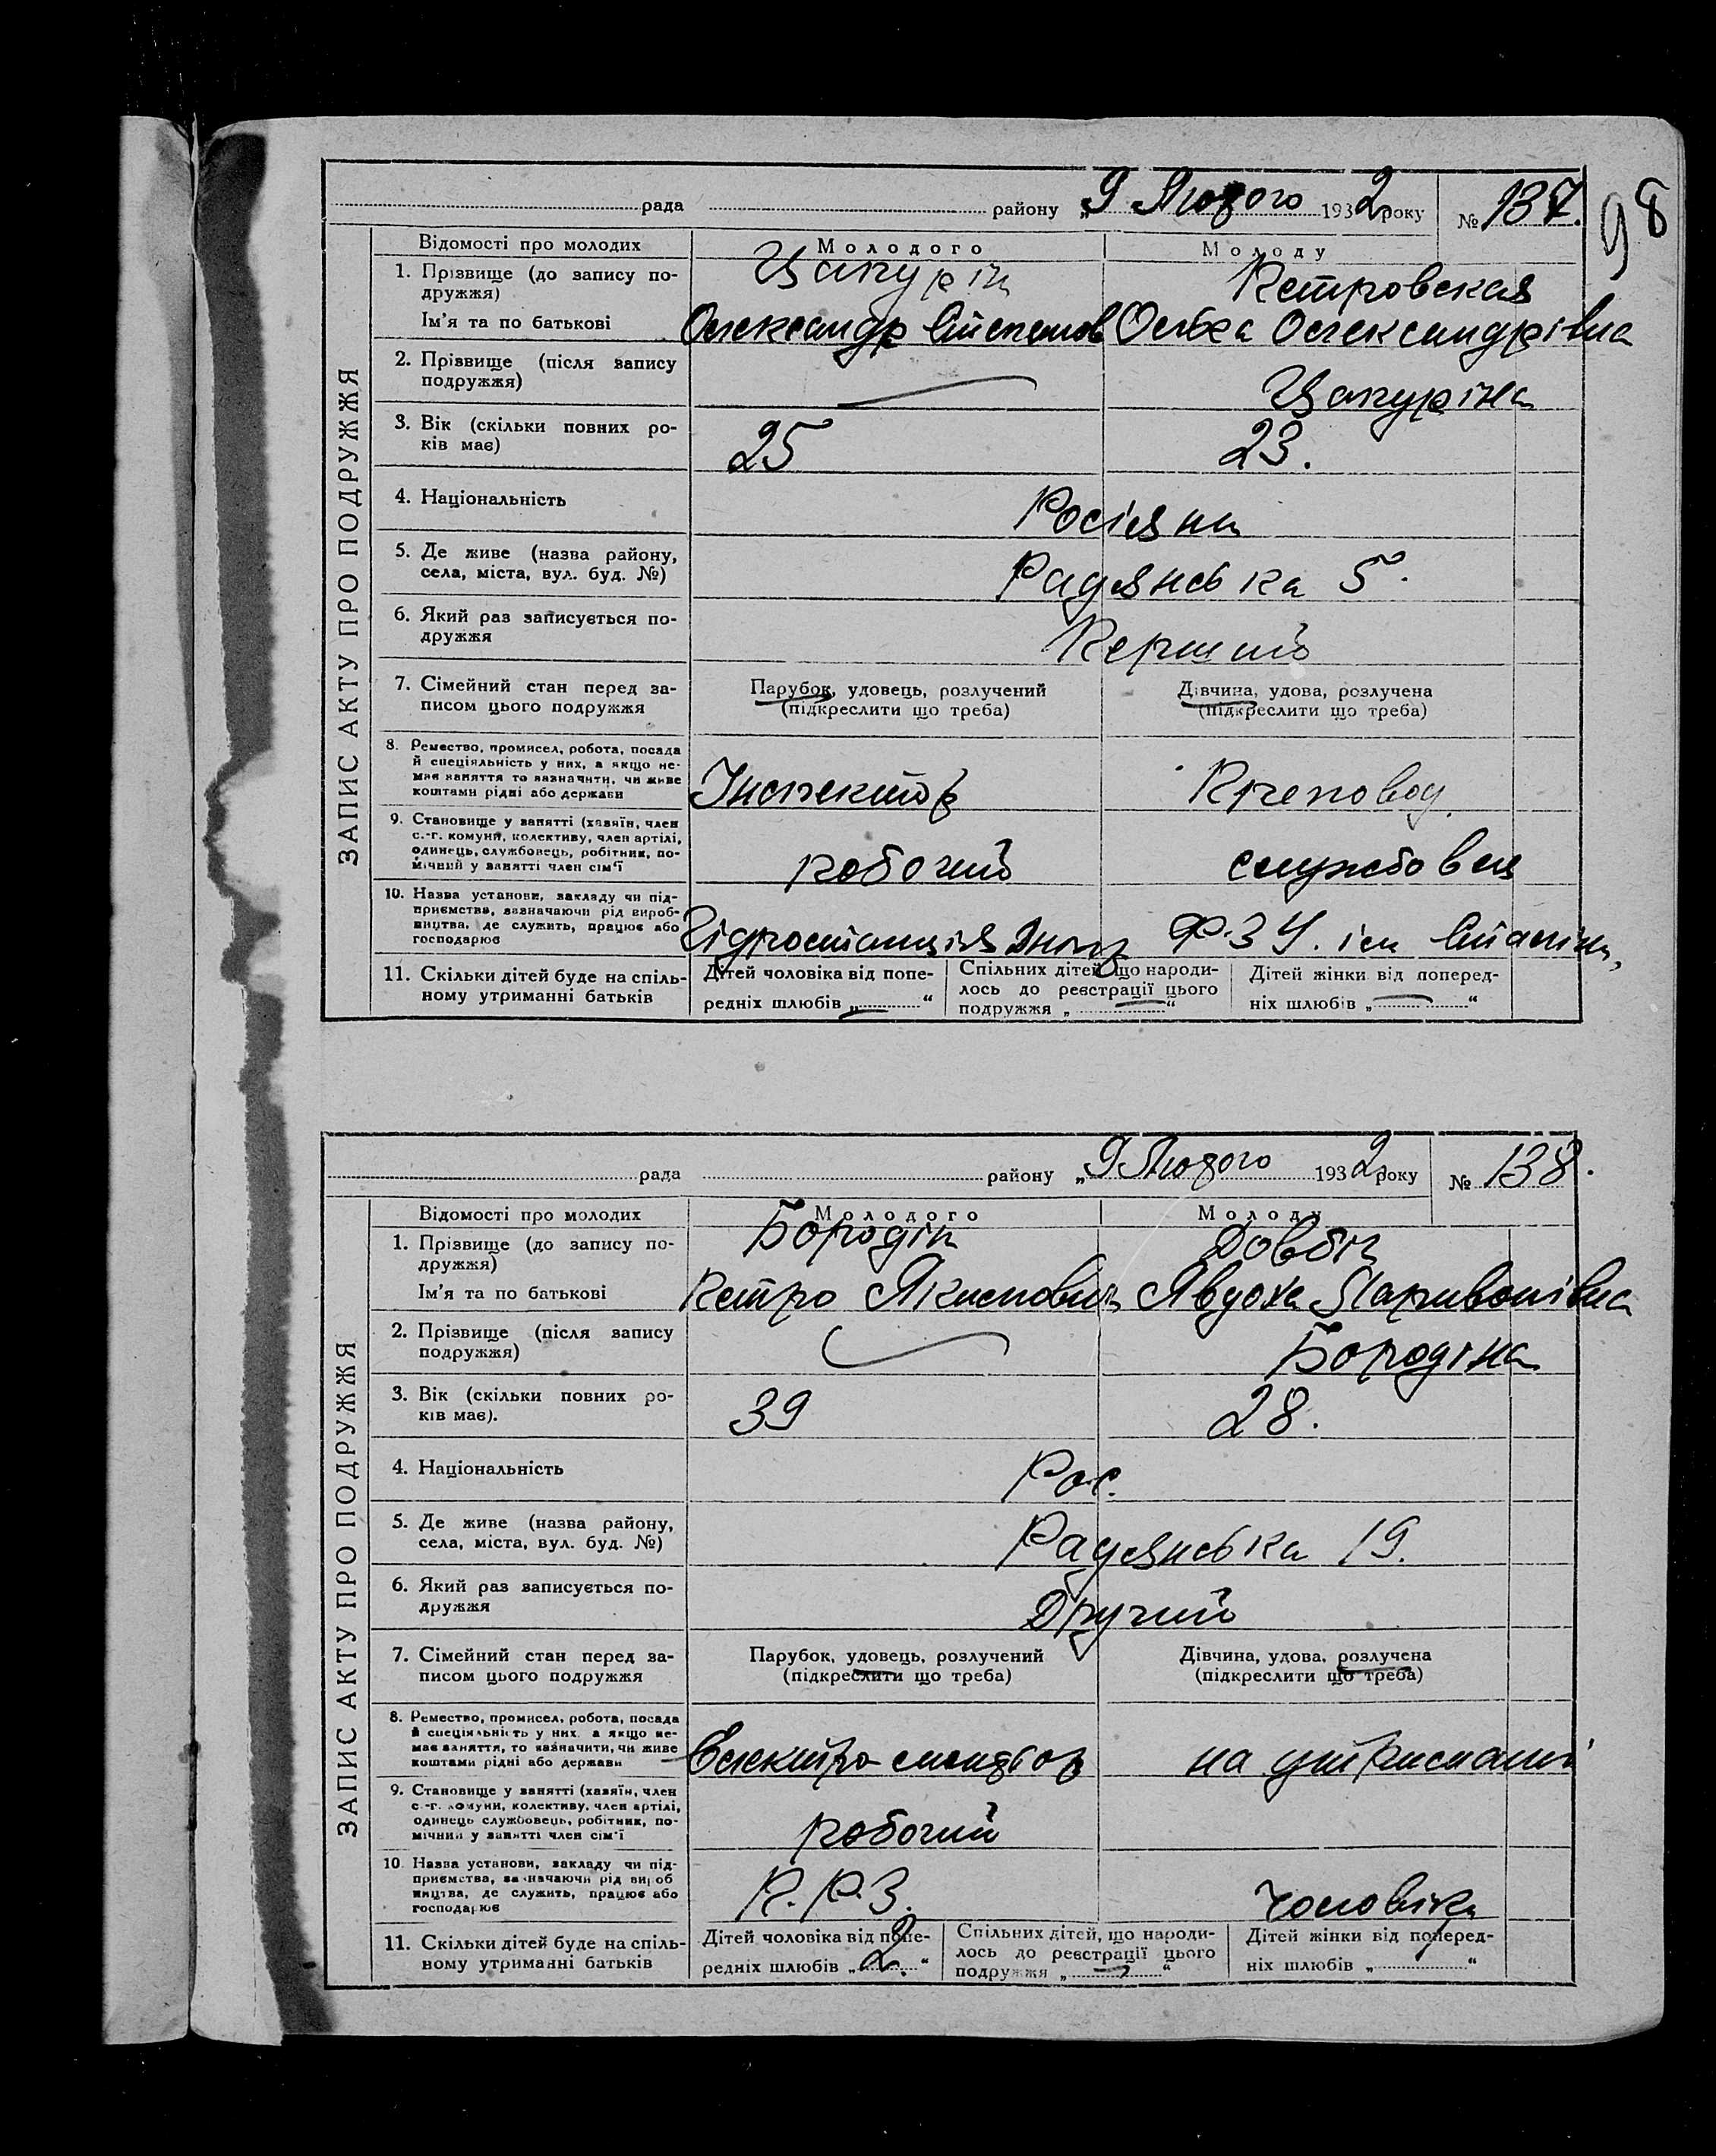 98
рада района „9 Лютого 1932 року № 137.
ЗАПИС АКТУ ПРО ПОДРУЖЖЯ
Відомості про молодих Молодого Молоду
1. Прізвище (до запису по-
дружжя)
Петровская
Ім'я та по батькові Олександр Степанов Ольга Олександрівна
2. Прізвище (після запису
подружжя)
3. Вік (скільки повних ро-
ків має) 25 23.
4. Національність Росіяни
5. Де живе (назва району,
села, міста, вул. буд. №) Радянська 5.
6. Який раз записується по-
дружжя Перший
7. Сімейний стан перед за-
писом цього подружжя
Парубок, удовець, розлучений
(підкреслити що треба)
Дівчина, удова, розлучена
(підкреслити що треба)
8. Ремество, промисел, робота, посада
й спеціяльність у них, а якщо не-
має заняття то зазначити, чи живе
коштами рідні або держави
Інспектор Рахковод
9. Становище у занятті (хазяїн, член
с.-г. комуни, колективу, член артілі,
одинець, службовець, робітник, по-
мічний у занятті член сім'ї
робочий службовая
10. Назва установи, закладу чи під-
приємства, зазначаючи рід вироб-
ництва, де служить, працює або
господарює
Гідростанція Ф.З.У. ім Сталіна,
11. Скільки дітей буде на спіль-
ному утриманні батьків
Дітей чоловіка від попе-
редніх шлюбів „ — “
Спільних дітей що народи-
лось до реєстрації цього
подружжя „ — “
Дітей жінки від поперед-
ніх шлюбів „ — “
рада району „9 Лютого 1932 року № 138.
ЗАПИС АКТУ ПРО ПОДРУЖЖЯ
Відомості про молодих Молодого Молоду
1. Прізвище (до запису по-
дружжя)
Бородін Довбіч
Ім'я та по батькові Петро Якимович Явдоха Ларивонівна
2. Прізвище (після запису
подружжя) Бородіна
3. Вік (скільки повних ро-
ків має). 39 28.
4. Національність Рос.
5. Де живе (назва району,
села, міста, вул. буд. №) Радянська 19.
6. Який раз записується по-
дружжя Другий
7. Сімейний стан перед за-
писом цього подружжя
Парубок, удовець, розлучений
(підкреслити що треба)
Дівчина, удова, розлучена
(підкреслити що треба)
8. Ремество, промисел, робота, посада
й спеціяльність у них, а якщо не-
має заняття, то зазначити, чи живе
коштами рідні або держави
Електро-монтьор на утриманні
9. Становище у занятті (хазяїн, член
с.-г. комуни, колективу, член артілі,
одинець службовець, робітник, по-
мічний у занятті член сім'ї
робочий
10. Назва установи, закладу чи під-
приємства, зазначаючи рід вироб
ництва, де служить, працює або
господарює
П.Р.З. чоловіка
11. Скільки дітей буде на спіль-
ному утриманні батьків
Дітей чоловіка від попе-
редніх шлюбів „2.“
Спільних дітей, що народи-
лось до реєстрації цього
подружжя „ — “
Дітей жінки від поперед-
ніх шлюбів „ “